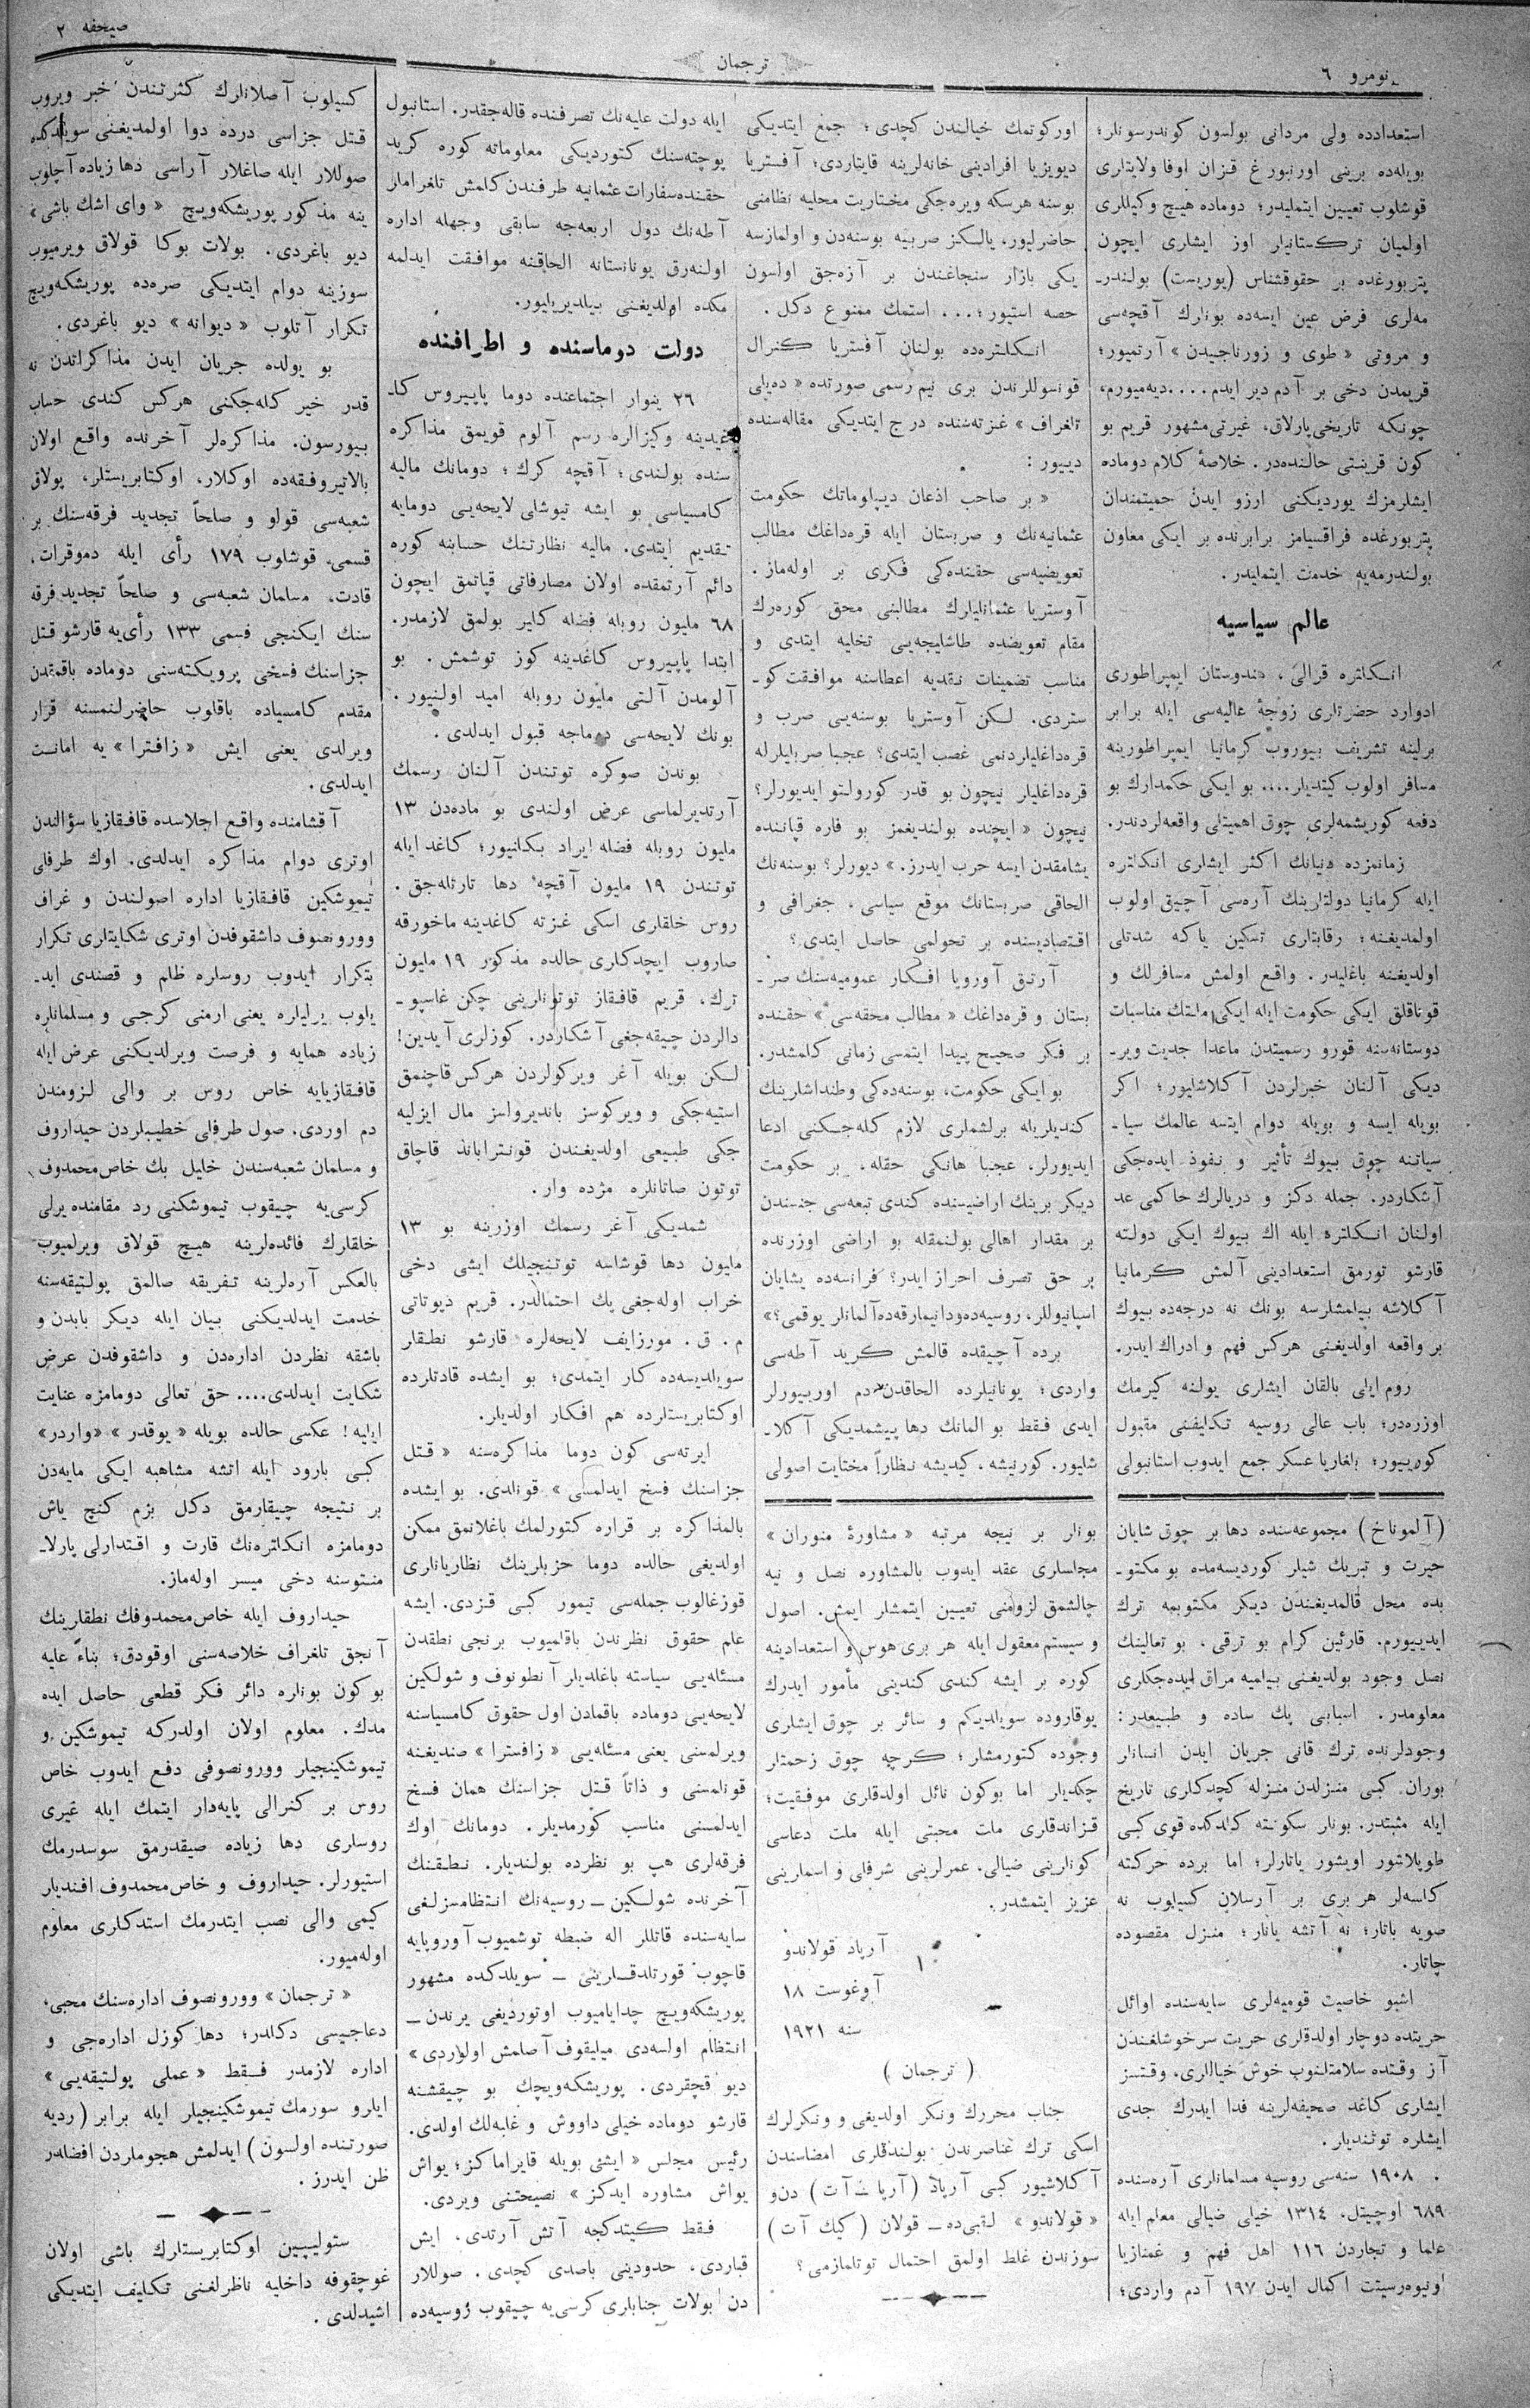 نومرو ٦
ترجمان
صحیفه ٢
استعدادده ولی مردانی بولسون کوندرسونلر؛
بویله‌ده برینی اورنبورغ قزان اوفا ولایتلری
قوشلوب تعیین ایتملیدر؛ دوماده هیچ وکیللری
اولمیان ترکستانیلر اوز ایشلری ایچون
پتربورغده بر حقوقشناس (یوریست) بولندر-
مه‌لری فرض عین ایسه‌ده بونلرك آقچه‌سی
و مروتی « طوی و زورناجیدن » آرتمیور؛
قریمدن دخی بر آدم دیر ایدم .... دیه‌میورم،
چونکه تاریخی پارلاق، غیرتی مشهور قریم بو
کون قرینتی حالنده‌در . خلاصهٔ کلام دوماده
ایشلرمزك یوردیکنی ارزو ایدن حمیتمندان
پتربورغده فراقسیامز برابرنده بر ایکی معاون
بولندرمه‌یه خدمت ایتملیدر .
عالم سیاسیه
انکلتره قرالی ، هندوستان ایمپراطوری
ادوارد حضرتلری زوجهٔ عالیه‌سی ایله برابر
برلینه تشریف بیوروب کرمانیا ایمپراطورینه
مسافر اولوب کیتدیلر .... بو ایکی حکمدارك بو
دفعه کوریشمه‌لری چوق اهمیتلی واقعه‌لردندر.
زمانمزده دنیانك اکثر ایشلری انکلتره
ایله کرمانیا دولتلرینك آره‌سی آچیق اولوب
اولمدیغنه ؛ رقابتلری تسکین یاکه شدتلی
اولدیغنه باغلیدر . واقع اولمش مسافرلك و
قوناقلق ایکی حکومت ایله ایکی ملتك مناسبات
دوستانه‌سنه قورو رسمیتدن ماعدا جدیت ویر-
دیکی آلنان خبرلردن آکلاشلیور ؛ اکر
بویله ایسه و بویله دوام ایتسه عالمك سیا-
سیاتنه چوق بیوك تأثیر و نفوذ ایده‌جکی
آشکاردر. جمله دکز و دریالرك حاکمی عد
اولنان انکلتره ایله اك بیوك ایکی دولته
قارشو تورمق استعدادینی آلمش کرمانیا
آکلاشه بیلمشلرسه بونك نه درجه‌ده بیوك
بر واقعه اولدیغنی هرکس فهم و ادراك ایدر.
روم ایلی بالقان ایشلری یولنه کیرمك
اوزره‌در؛ باب عالی روسیه تکلیفنی مقبول
کورییور؛ بلغاریا عسکر جمع ایدوب استانبولی
(آلموناخ) مجموعه‌سنده دها بر چوق شایان
حیرت و تبریك شیلر کوردیسه‌مده بو مکتو-
بده محل قالمدیغندن دیکر مکتوبمه ترك
ایدییورم. قارئین کرام بو ترقی ، بو تعالینك
نصل وجود بولدیغنی بیلمیه مراق ایده‌جکلری
معلومدر. اسبابی پك ساده و طبیعدر:
وجودلرنده ترك قانی جریان ایدن انسانلر
بوران کبی منزلدن منزله کچدکلری تاریخ
ایله مثبتدر. بونلر سکونته کلدکده قوی کبی
طوپلاشور اویشور یاتارلر؛ اما برده حرکته
کلسه‌لر هر بری بر آرسلان کسیلوب نه
صویه باتار؛ نه آتشه یانار؛ منزل مقصوده
چاتار.
اشبو خاصیت قومیه‌لری سایه‌سنده اوائل
حریتده دوچار اولدقلری حریت سرخوشلغندن
آز وقتده سلامتلنوب خوش خیاللری، وقتسز
ایشلری کاغد صحیفه‌لرینه فدا ایدرك جدی
ایشلره توتندیلر .
١٩٠٨ سنه‌سی روسیه مسلمانلری آره‌سنده
٦٨٩ اوچیتل، ١٣١٤ خیلی ضیالی معلم ایله
علما و تجاردن ١١٦ اهل فهم و غمنازیا
اونیوه‌رسیتت اکمال ایدن ١٩٧ آدم واردی؛
اورکوتمك خیالندن کچدی؛ جمع ایتدیکی
دیویزیا افرادینی خانه‌لرینه قایتاردی؛ آفستریا
بوسنه هرسکه ویره‌جکی مختاریت محلیه نظامنی
حاضرلیور، یالکز صربیه بوسنه‌دن و اولمازسه
یکی بازار سنجاغندن بر آزه‌جق اولسون
حصه استیور؛ ... استمك ممنوع دکل .
انکلتره‌ده بولنان آفستریا کنرال
قونسوللرندن بری نیم رسمی صورتده « ده‌یلی
تلغراف » غزته‌سنده درج ایتدیکی مقاله‌سنده
دییور :
« بر صاحب اذعان دیپلوماتك حکومت
عثمانیه‌نك و صربستان ایله قره‌داغك مطالب
تعویضیه‌سی حقنده‌کی فکری بر اوله‌ماز .
آوستریا عثمانلیلرك مطالبنی محق کوره‌رك
مقام تعویضده طاشلیجه‌یی تخلیه ایتدی و
مناسب تضمینات نقدیه اعطاسنه موافقت کو-
ستردی. لکن آوستریا بوسنه‌یی صرب و
قره‌داغلیلردنمی غصب ایتدی؟ عجبا صربلیلرله
قره‌داغلیلر نیچون بو قدر کورولتو ایدیورلر؟
نیچون « ایچنده بولندیغمز بو فاره قپاننده
یشامقدن ایسه حرب ایدرز. » دیورلر؟ بوسنه‌نك
الحاقی صربستانك موقع سیاسی ، جغرافی و
اقتصادیسنده بر تحولمی حاصل ایتدی؟
آرتق آوروپا افکار عمومیه‌سنك صر-
بستان و قره‌داغك « مطالب محقه‌سی » حقنده
بر فکر صحیح پیدا ایتمسی زمانی کلمشدر.
بو ایکی حکومت، بوسنه‌ده‌کی وطنداشلرینك
کندیلریله برلشملری لازم کله‌جکنی ادعا
ایدیورلر، عجبا هانکی حقله، بر حکومت
دیکر برینك اراضیسنده کندی تبعه‌سی جنسندن
بر مقدار اهالی بولنمقله بو اراضی اوزرنده
بر حق تصرف احراز ایدر؟ فرانسه‌ده یشایان
اسپانیوللر، روسیه‌ده‌ودانیمارقه‌ده‌آلمانلر یوقمی؟»
برده آچیقده قالمش کرید آطه‌سی
واردی؛ یونانیلرده الحاقدن دم اوریورلر
ایدی فقط بو المانك دها پیشمدیکی آکلا-
شلیور. کورنیشه ، کیدیشه نظاراً مختاریت اصولی
بونلر بر نیجه مرتبه « مشاورهٔ منوران »
مجلسلری عقد ایدوب بالمشاوره نصل و نیه
چالشمق لزومنی تعیین ایتمشلر ایمش. اصول
و سیستم معقول ایله هر بری هوس و استعدادینه
کوره بر ایشه کندی کندینی مأمور ایدرك
یوقاروده سویلدیکم و سائر بر چوق ایشلری
وجوده کتورمشلر ؛ کرچه چوق زحمتلر
چکدیلر اما بوکون نائل اولدقلری موفقیت؛
قزاندقلری ملت محبتی ایله ملت دعاسی
کوئلرینی ضیالی، عمرلرینی شرفلی و اسملرینی
عزیز ایتمشدر.
آرپاد قولاندو
آوغوست ١٨
سنه ١٩٢١
( ترجمان )
جناب محررك ونکر اولدیغی و ونکرلرك
اسکی ترك عناصرندن بولندقلری امضاسندن
آکلاشیور کبی آرپاد (آرپا - آت) دن‌و
« قولاندو » لقبی‌ده - قولان (کیك آت)
سوزندن غلط اولمق احتمال توتلمازمی؟
ایله دولت علیه‌نك تصرفنده قاله‌جقدر. استانبول
پوچته‌سنك کتوردیکی معلوماته کوره کرید
حقنده‌سفارات عثمانیه طرفندن کلمش تلغراملر
آطه‌نك دول اربعه‌جه سابقی وجهله اداره
اولنه‌رق یونانستانه الحاقنه موافقت ایدلمه
مکده اولدیغنی بیلدیریلیور.
دولت دوماسنده و اطرافنده
٢٦ ینوار اجتماعنده دوما پاپیروس کا-
غیدینه وکیزالره رسم آلوم قویمق مذاکره
سنده بولندی ؛ آقچه کرك ؛ دومانك مالیه
کامسیاسی بو ایشه تیوشلی لایحه‌یی دومایه
تقدیم ایتدی. مالیه نظارتنك حسابنه کوره
دائم آرتمقده اولان مصارفاتی قپاتمق ایچون
٦٨ ملیون روبله فضله کلیر بولمق لازمدر.
ابتدا پاپیروس کاغدینه کوز توشمش . بو
آلومدن آلتی ملیون روبله امید اولنیور .
بونك لایحه‌سی دوماجه قبول ایدلدی .
بوندن صوکره توتندن آلنان رسمك
آرتدیرلماسی عرض اولندی بو ماده‌دن ١٣
ملیون روبله فضله ایراد بکلنیور؛ کاغد ایله
توتندن ١٩ ملیون آقچه دها تارتله‌جق .
روس خلقلری اسکی غزته کاغدینه ماخورقه
صاروب ایچدکلری حالده مذکور ١٩ ملیون
ترك، قریم قافقاز توتونلرینی چکن غاسپو-
دالردن چیقه‌جغی آشکاردر. کوزلری آیدین!
لکن بویله آغر ویرکولردن هرکس قاچنمق
استیه‌جکی و ویرکوسز باندیرولسز مال ایزلیه
جکی طبیعی اولدیغندن قونترابانذ قاچاق
توتون صاتانلره مژده وار .
شمدیکی آغر رسمك اوزرینه بو ١٣
ملیون دها قوشلسه توتنجیلك ایشی دخی
خراب اوله‌جغی پك احتمالدر. قریم دپوتاتی
م . ق . مورزایف لایحه‌لره قارشو نطقلر
سویلدیسه‌ده کار ایتمدی؛ بو ایشده قادتلرده
اوکتابریستلرده هم افکار اولدیلر.
ایرته‌سی کون دوما مذاکره‌سنه « قتل
جزاسنك فسخ ایدلمسی » قونلدی. بو ایشده
بالمذاکره بر قراره کتورلمك باغلانمق ممکن
اولدیغی حالده دوما حزبلرینك نظاریاتلری
قوزغالوب جمله‌سی تیمور کبی قزدی. ایشه
علم حقوق نظرندن باقلمیوب برنجی نطقدن
مسئله‌یی سیاسته باغلدیلر آنطونوف و شولکین
لایحه‌یی دوماده باقمادن اول حقوق کامسیاسنه
ویرلمسنی یعنی مسئله‌یی « زافسترا » صندیغنه
قونلمسنی و ذاتاً قتل جزاسنك همان فسخ
ایدلمسنی مناسب کورمدیلر. دومانك اوك
فرقه‌لری هپ بو نظرده بولندیلر. نطقنك
آخرنده شولکین - روسیه‌نك انتظامسزلغی
سایه‌سنده قاتللر اله ضبطه توشمیوب آوروپایه
قاچوب قورتلدقلرینی - سویلدکده مشهور
پوریشکه‌ویچ چدایامیوب اوتوردیغی یرندن -
انتظام اولسه‌دی میلیقوف آصلمش اولاردی »
دیو قچقردی. پوریشکه‌ویچك بو چیقشنه
قارشو دوماده خیلی داووش و غلبه‌لك اولدی.
رئیس مجلس « ایشی بویله قایراماکز؛ یواش
یواش مشاوره ایدکز » نصیحتنی ویردی.
فقط کیتدکجه آتش آرتدی، ایش
قباردی، حدودینی باصدی کچدی. صوللار
دن بولات جنابلری کرسی‌یه چیقوب روسیه‌ده
کسیلوب آصلانلرك کثرتندن خبر ویروب
قتل جزاسی درده دوا اولمدیغنی سویلدکده
صوللار ایله صاغلار آراسی دها زیاده آچلوب
ینه مذکور پوریشکه‌ویچ « وای اشك باشی »
دیو باغردی. بولات بوکا قولاق ویرمیوب
سوزینه دوام ایتدیکی صره‌ده پوریشکه‌ویچ
تکرار آتلوب « دیوانه » دیو باغردی.
بو یولده جریان ایدن مذاکراتدن نه
قدر خیر کله‌جکنی هرکس کندی حساب
بیورسون. مذاکره‌لر آخرنده واقع اولان
بالاتیروفقه‌ده اوکلار، اوکتابریستلر، پولاق
شعبه‌سی قولو و صلحاً تجدید فرقه‌سنك بر
قسمی قوشلوب ١٧٩ رأی ایله دموقرات،
قادت، مسلمان شعبه‌سی و صلحاً تجدید فرقه
سنك ایکنجی قسمی ١٣٣ رأی‌یه قارشو قتل
جزاسنك فسخی پرویکته‌سنی دوماده باقمقدن
مقدم کامسیاده باقلوب حاضرلنمسنه قرار
ویرلدی یعنی ایش « زافترا » یه امانت
ایدلدی.
آقشامنده واقع اجلاسده قافقازیا سؤالندن
اوتری دوام مذاکره ایدلدی. اوك طرفلی
تیموشکین قافقازیا اداره اصولندن و غراف
وورونصوف داشقوفدن اوتری شکایتلری تکرار
بتکرار ایدوب روسلره ظلم و قصندی اید-
یلوب یرلیلره یعنی ارمنی کرجی و مسلمانلره
زیاده همایه و فرصت ویرلدیکنی عرض ایله
قافقازیایه خاص روس بر والی لزومندن
دم اوردی. صول طرفلی خطیبلردن حیداروف
و مسلمان شعبه‌سندن خلیل بك خاص‌محمدوف
کرسی‌یه چیقوب تیموشکنی رد مقامنده یرلی
خلقلرك فائده‌لرینه هیچ قولاق ویرلمیوب
بالعکس آره‌لرینه تفریقه صالمق پولتیقه‌سنه
خدمت ایدلدیکنی بیان ایله دیکر بابدن و
باشقه نظردن اداره‌دن و داشقوفدن عرض
شکایت ایدلدی.... حق تعالی دومامزه عنایت
ایلیه! عکسی حالده بویله « یوقدر » « واردر»
کبی بارود ایله اتشه مشاهبه ایکی مایه‌دن
بر نتیجه چیقارمق دکل بزم کنج یاش
دومامزه انکلتره‌نك قارت و اقتدارلی پارلا-
منتوسنه دخی میسر اوله‌ماز.
حیداروف ایله خاص‌محمدوفك نطقلرینك
آنجق تلغراف خلاصه‌سنی اوقودق؛ بناءً علیه
بوکون بونلره دائر فکر قطعی حاصل ایده
مدك. معلوم اولان اولدرکه تیموشکین و
تیموشکینجیلر وورونصوفی دفع ایدوب خاص
روس بر کنرالی پایه‌دار ایتمك ایله غیری
روسلری دها زیاده صیقدرمق سوسدرمك
استیورلر. حیداروف و خاص‌محمدوف افندیلر
کیمی والی نصب ایتدرمك استدکلری معلوم
اوله‌میور.
« ترجمان » وورونصوف اداره‌سنك محبی،
دعاجیسی دکلدر؛ دها کوزل اداره‌جی و
اداره لازمدر فقط « عملی پولتیقه‌یی »
ایلرو سورمك تیموشکینجیلر ایله برابر (ردیه
صورتنده اولسون) ایدلمش هجوملردن افضلدر
ظن ایدرز .
ستولیپین اوکتابریستلرك باشی اولان
غوچقوفه داخلیه ناظرلغنی تکلیف ایتدیکی
اشیدلدی .